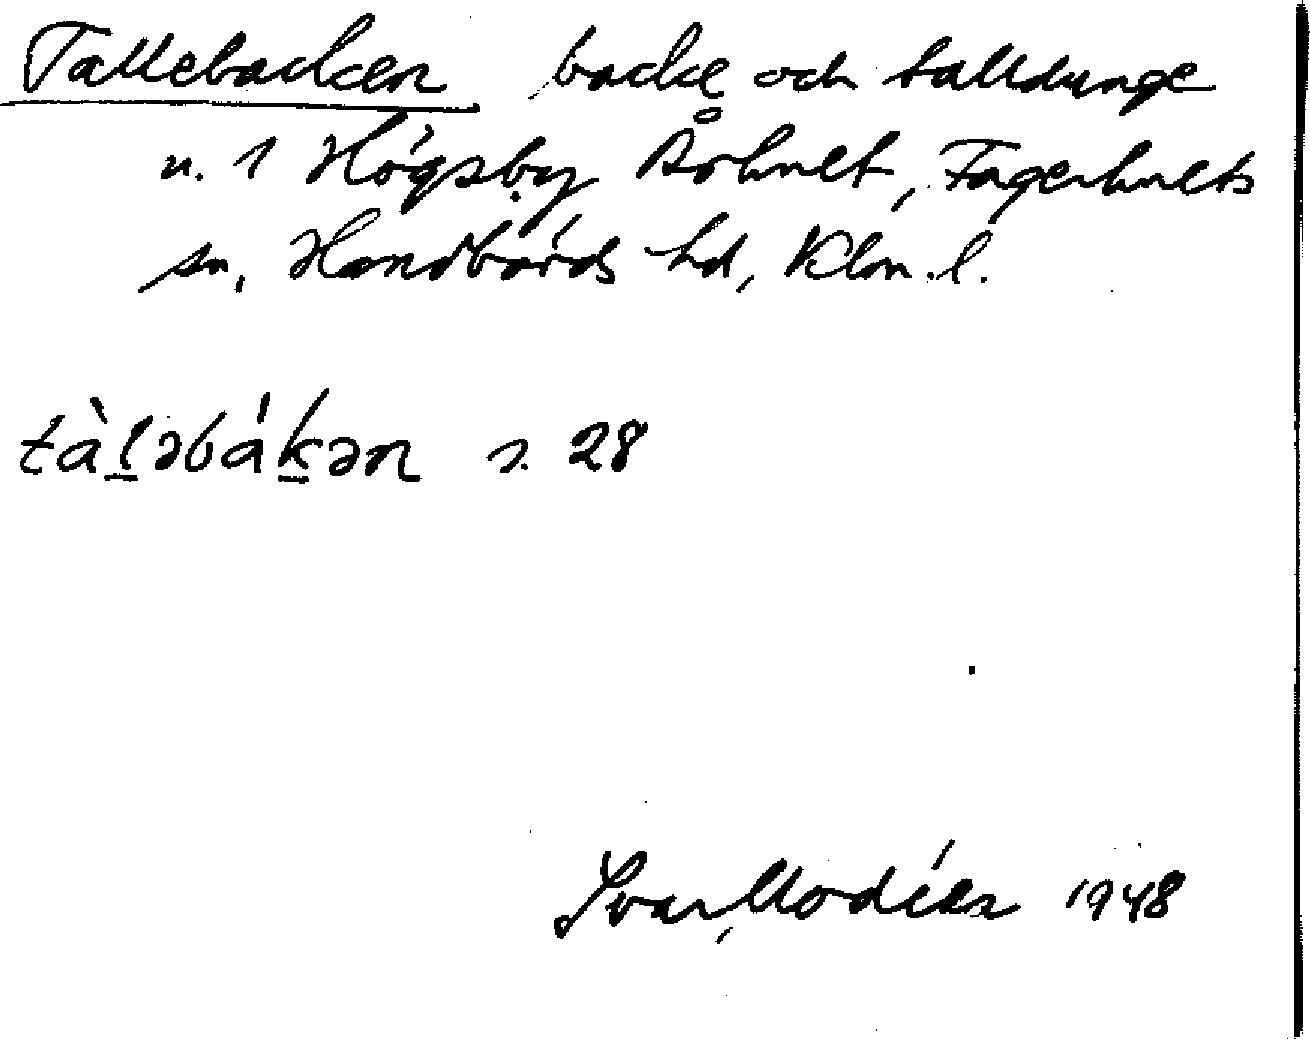 Tallebacken backe och talldunge
u. 1 Högsby Århult, Fagerhults
sn, Handbörds hd, Klm. l.
tàḻəbáḵən s. 28
Ivar Modéer 1948